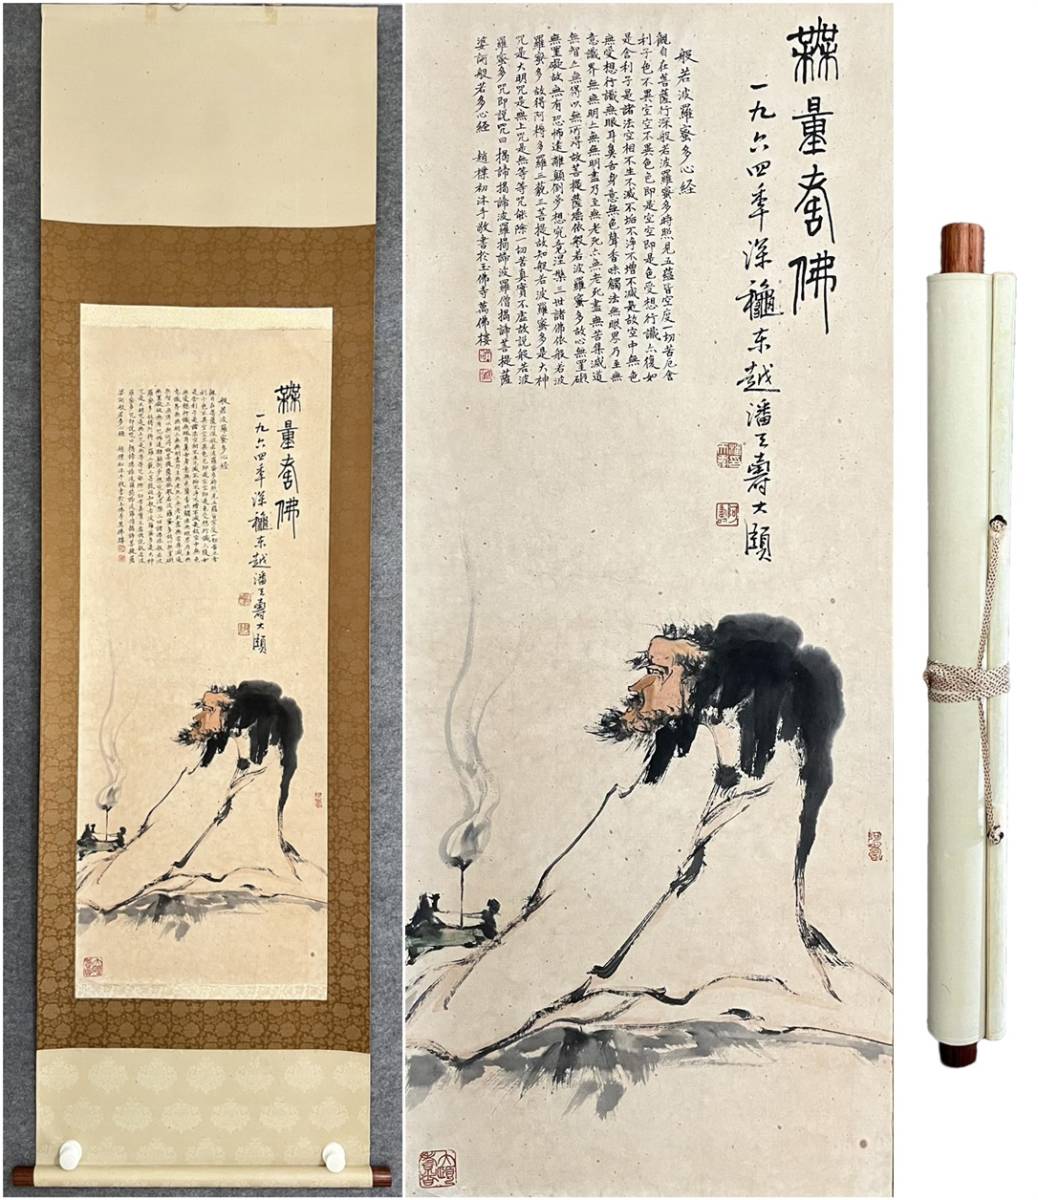 無量壽佛
一九六四年深穐东越潘天壽大頤
般若波羅蜜多心経
觀自在菩薩行深般若波羅蜜多時照見五蘊皆空度一切苦厄舍
利子色不異空空不異色色即是空空即是色受想行識亦復如
是舍利子是諸法空相不生不滅不垢不净不增不減是故空中無色
無受想行識無眼耳鼻舌身意無色聲香味觸法無眼界乃至無
意識界無無明亦無無明盡乃至無老死亦無老死盡無苦集滅道
無智亦無得以無所得故菩提薩埵依般若波羅蜜多故心無罣礙
無罣礙故無有恐怖遠離顛倒夢想究竟涅槃三世諸佛依般若波
羅蜜多故得阿耨多羅三藐三菩提故知般若波羅蜜多是大神
咒是大明咒是無上咒是無等等咒能除一切苦真實不虛故説般若波
羅蜜多咒即説咒曰揭諦揭諦波羅揭諦波羅僧揭諦菩提薩
婆訶般若多心経 趙樸初沐手敬書於玉佛寺萬佛樓